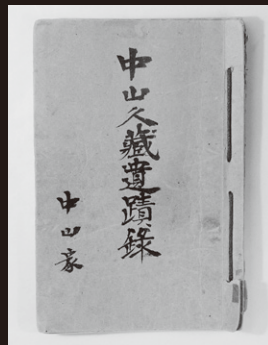 中山久藏遺蹟錄
中山家